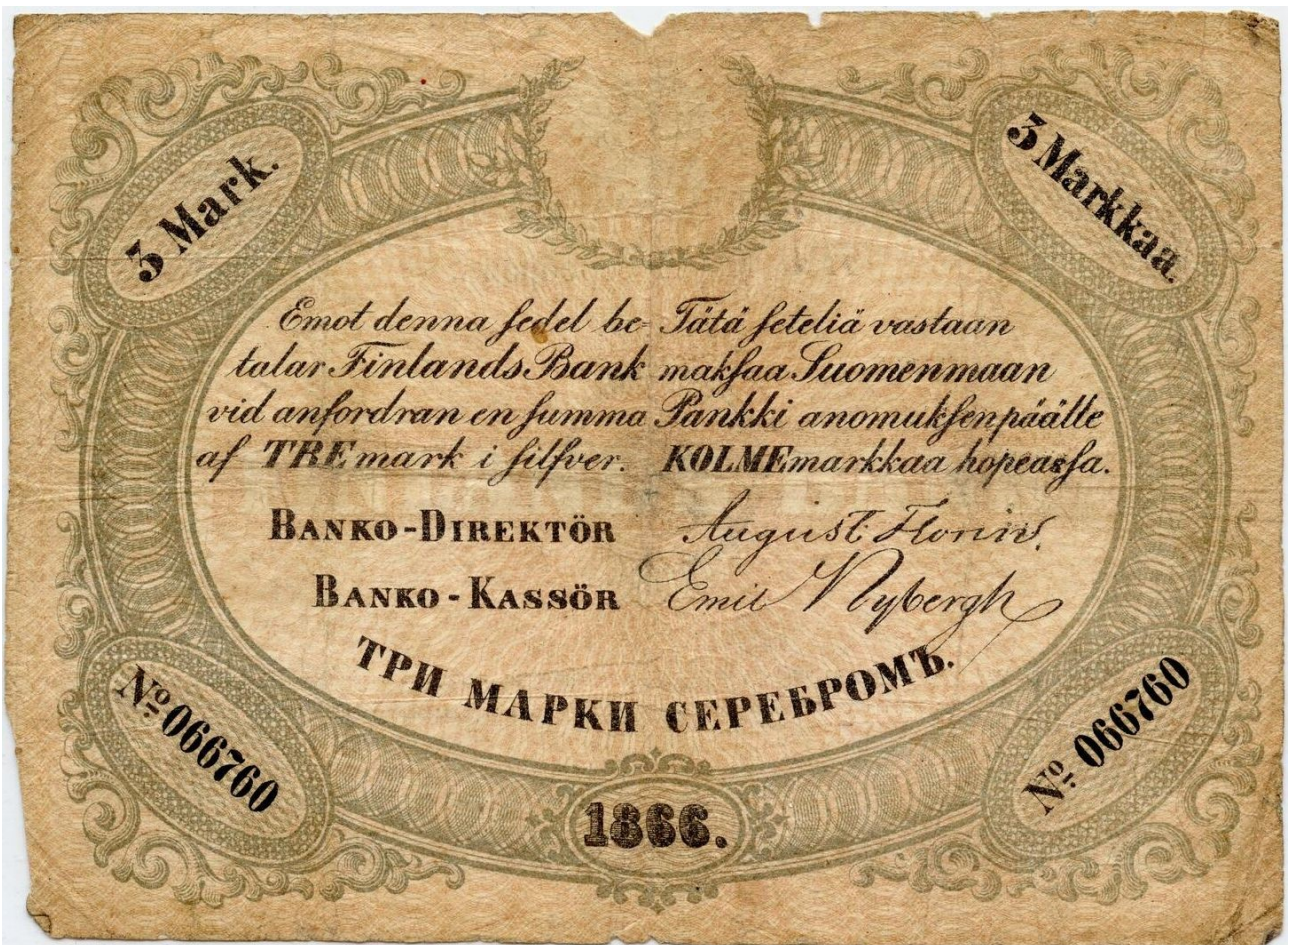 3 Mark.
3 Markkaa.
Emot denna sedel be-
talar Finlands Bank
vid anfordran en summa
af TRE mark i silfver.
Tätä seteliä vastaan
maksaa Suomenmaan
Pankki anomuksen päälle
KOLME markkaa hopeassa.
BANKO-DIREKTÖR August Florin.
BANKO-KASSÖR Emil Nybergh
ТРИ МАРКИ СЕРЕБРОМЪ.
№ 066760
№ 066760
1866.